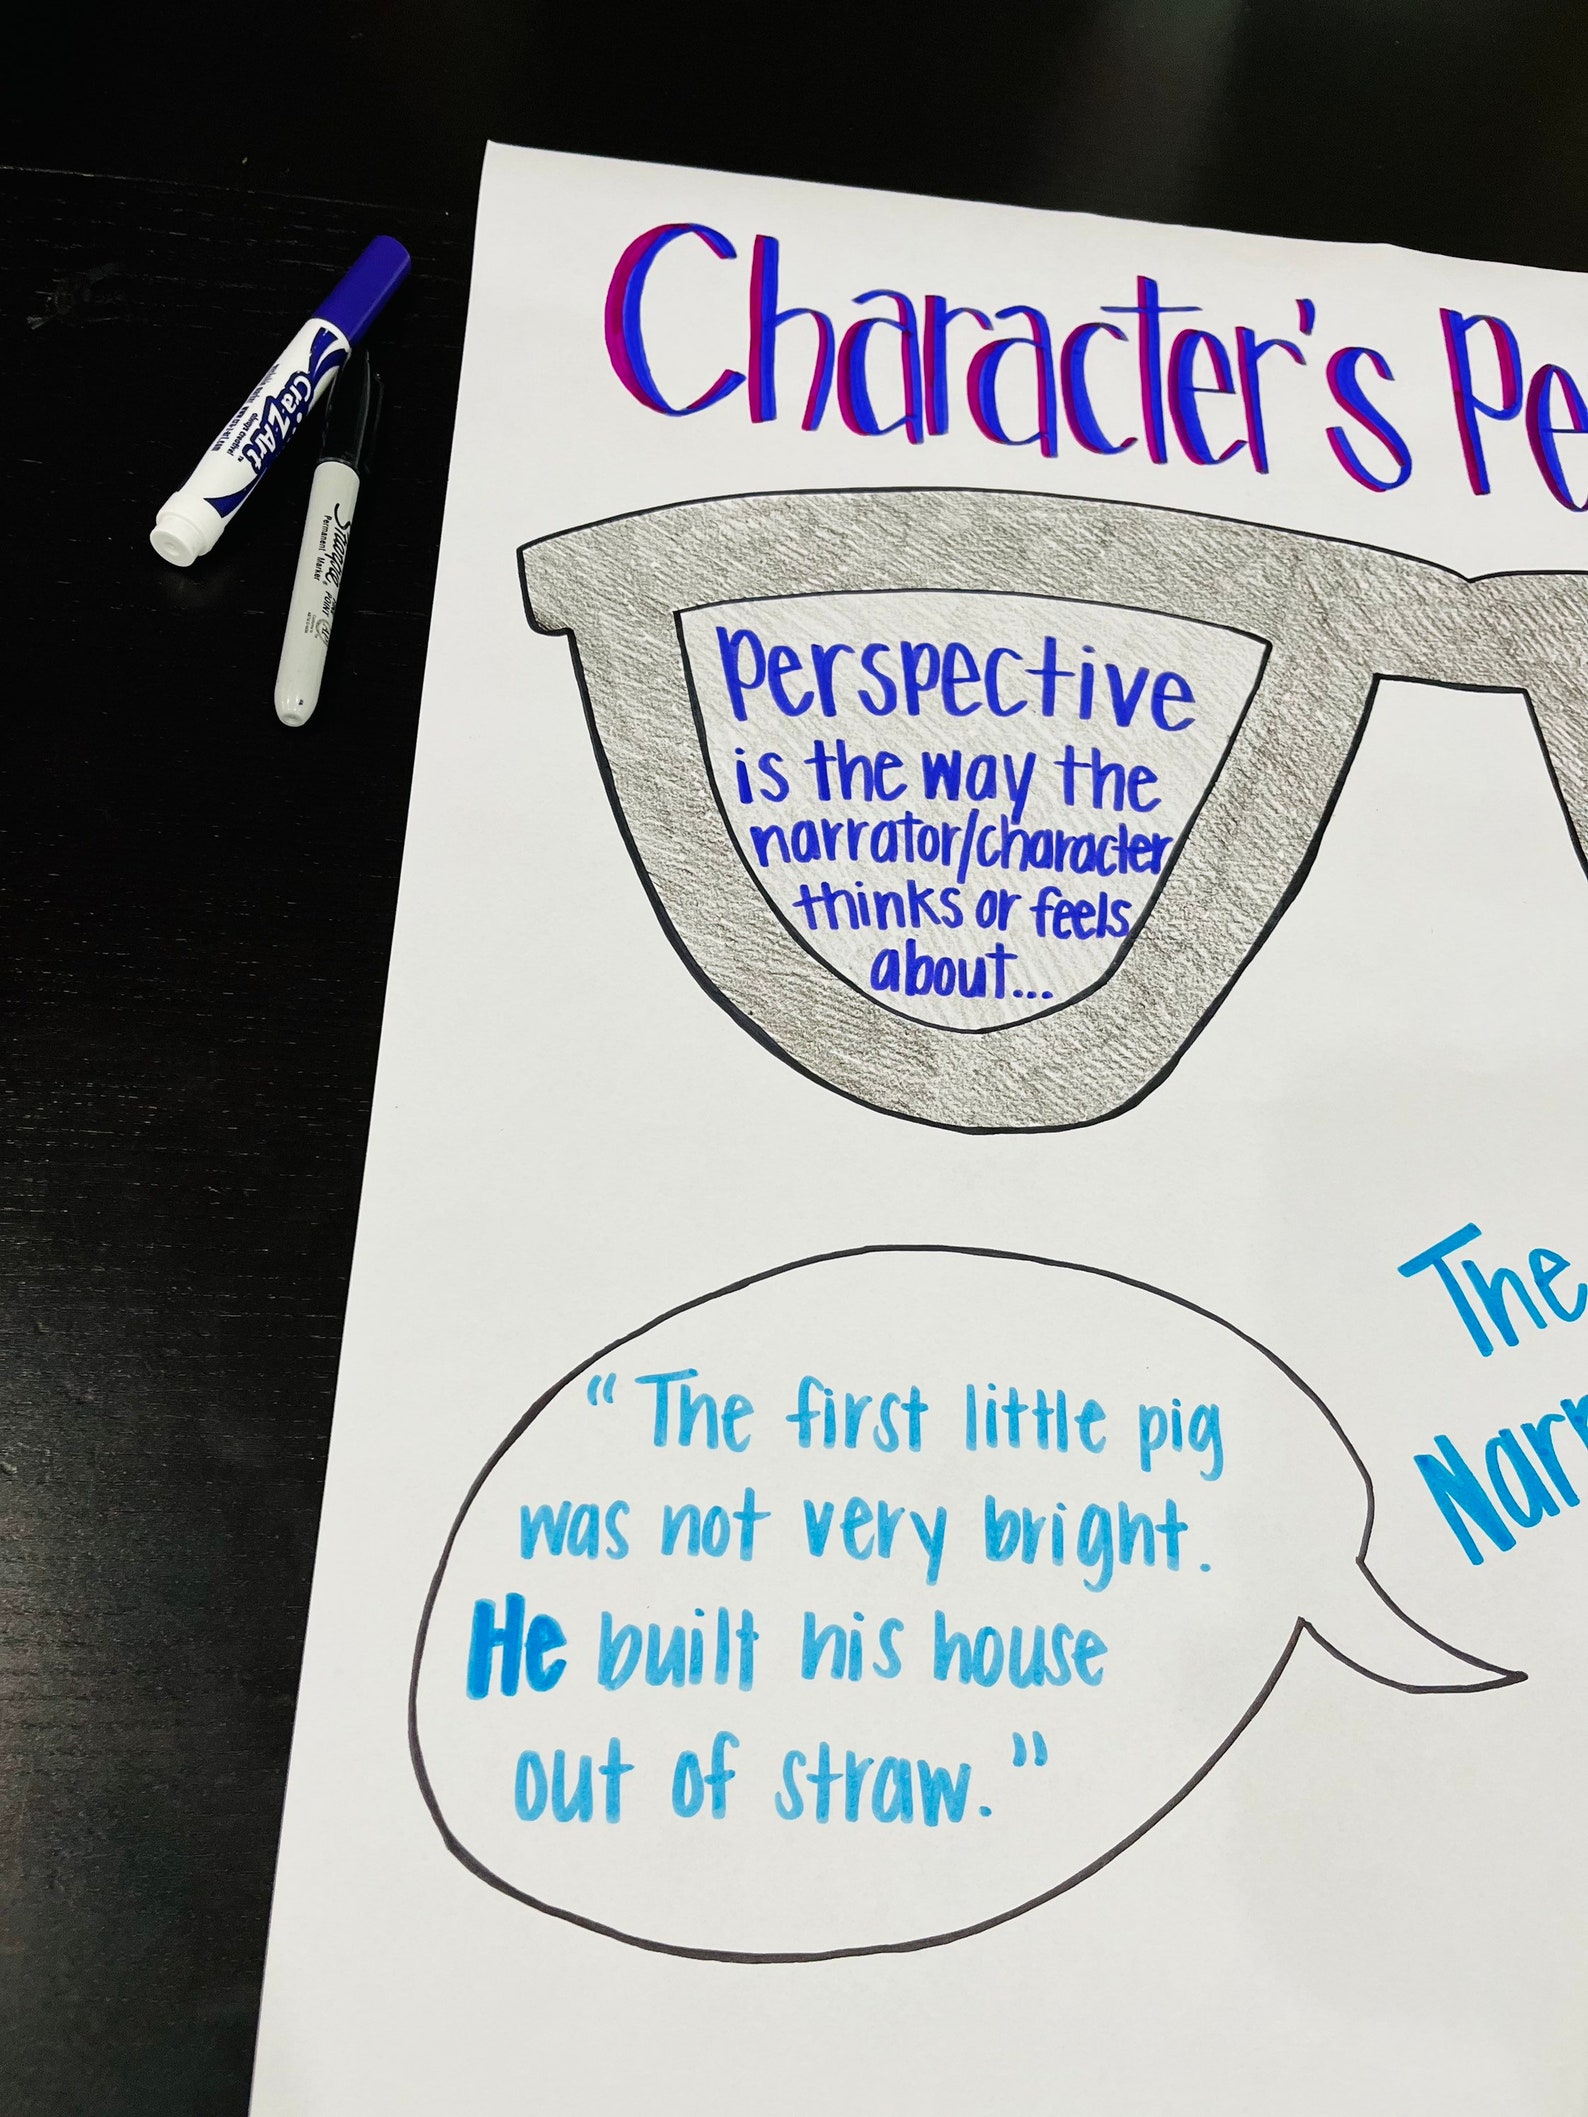 Character's Pe
perspective
is the way the
narrator/character
thinks or feels
about...
The
Narr
"The first little pig
was not very bright.
He built his house
out of straw."
Cra-Z-Art
Sharpie
Permanent Marker